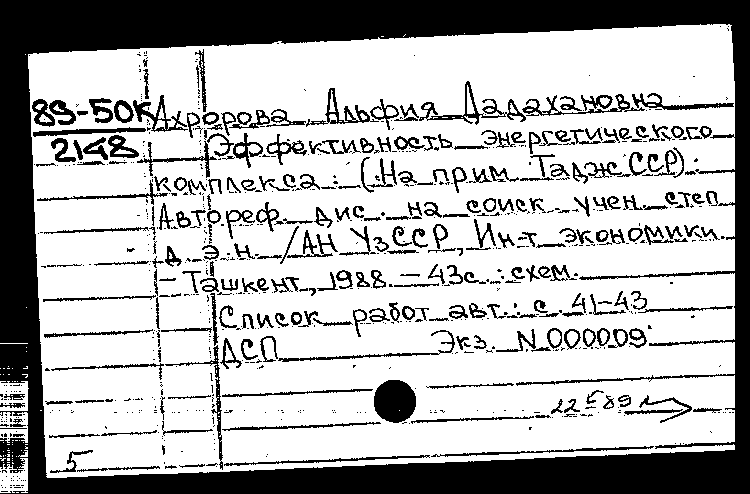 89-50К Ахророва Альфия Дадахановна
2148 Эффективность энергетического
комплекса: (На прим Тадж ССР):
Автореф. дис. на соиск. учен. степ
д. э. н. /АН УзССР, Ин-т экономики
– Ташкент, 1988. – 43с.: схем.
Список работ авт.: с. 41-43
ДСП Экз. N 000009
5